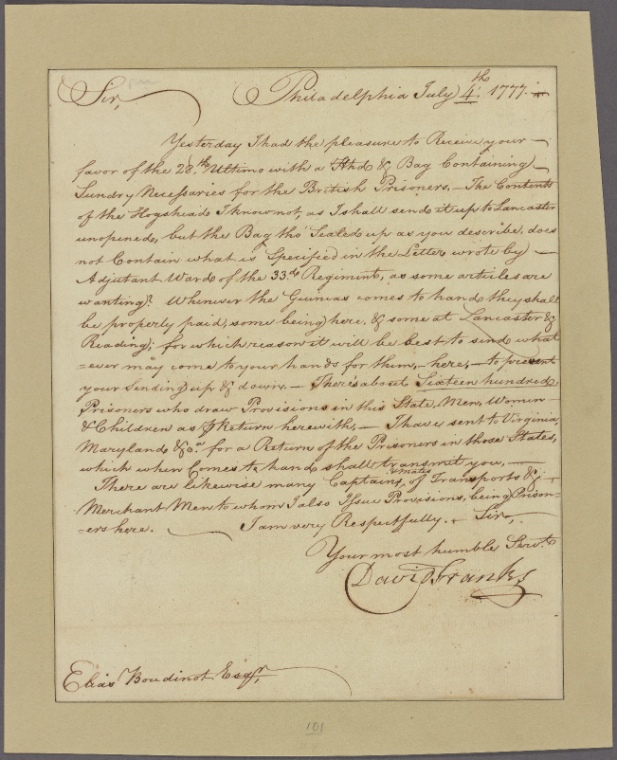 Sir, Philadelphia July 4th. 1777.
Yesterday I had the pleasure to Receive your
favor of the 28.th Ultimo with a Hhd & Bag Containing
Sundry Necessaries for the British Prisoners, — The Contents
of the Hogshead I know not, as I shall send it up to Lancaster
unopened, but the Bag tho' Sealed up as you describe, does
not Contain what is Specified in the Letter wrote by —
Adjutant Ward of the 33.rd Regiment, as some articles are
wanting. Whenever the Guineas comes to hand they shall
be properly paid, some being here, & some at Lancaster &
Reading; for which reason it will be best to send what
=ever may come to your hands for them, here, — to prevent
your Sending up & down. — There is about Sixteen hundred
Prisoners who draw Provisions in this State, Men, Women
& Children as ⅌ Return herewith, — I have sent to Virginia,
Maryland &c.a for a Return of the Prisoners in those States,
which when Comes to hand shall transmit you, —
There are likewise many Captains, & Mates of Transports &
Merchant Men to whom I also Issue Provisions, being Prison-
=ers here. — I am very Respectfully. Sir,
Your most humble Serv.t
David Franks
Elias Boudinot Esqr.
101